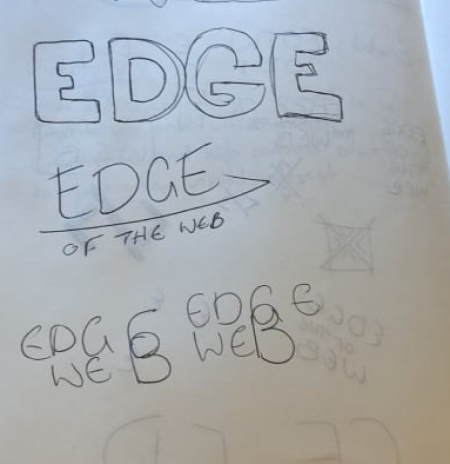 EDGE
EDGE
OF THE WEB
EDGE EDGE
WEB WEB